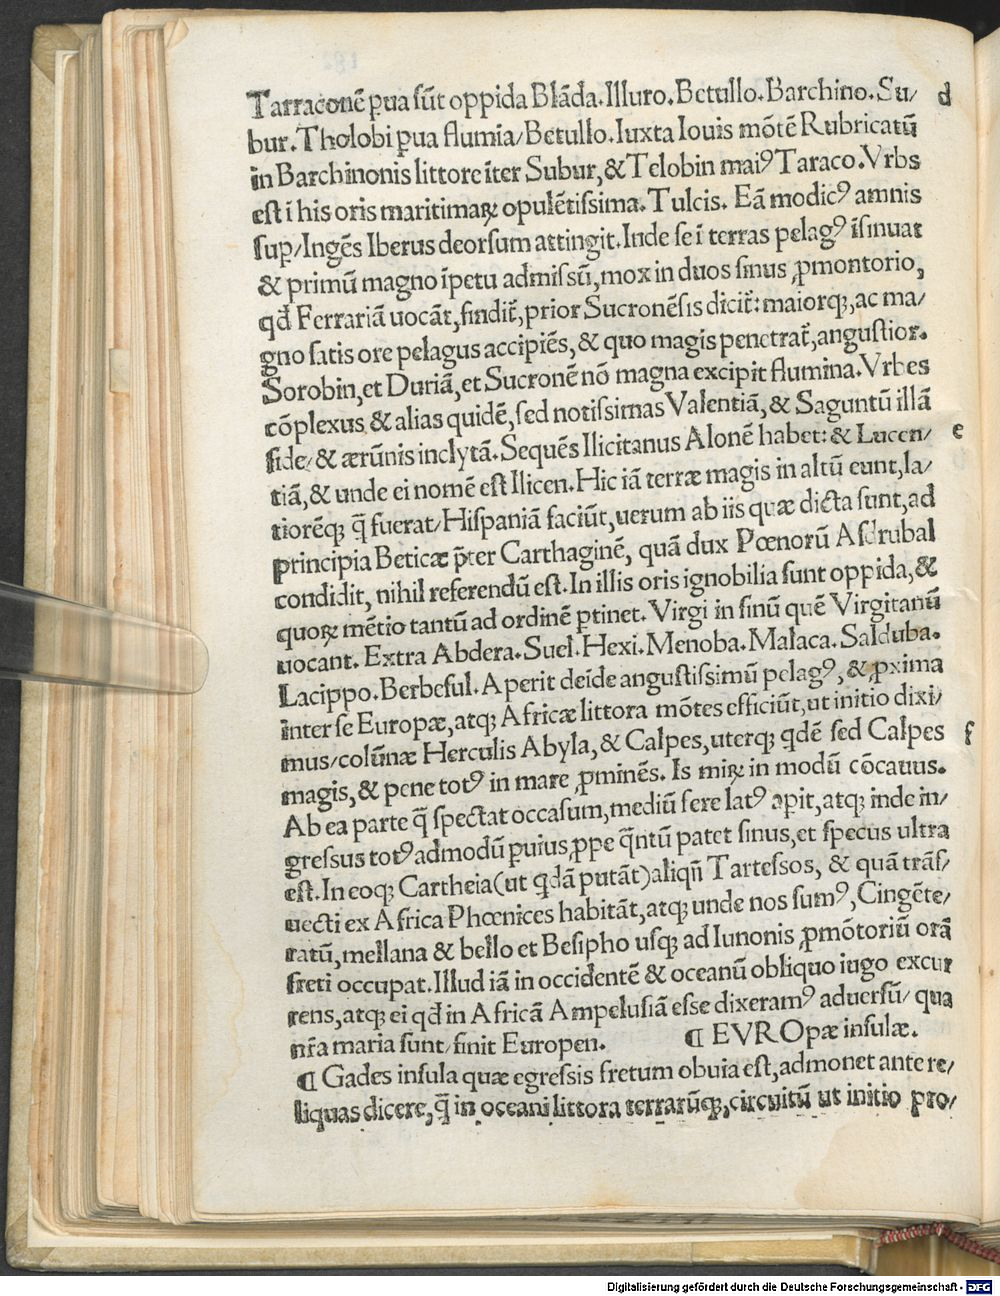 Tarraconē ꝑua sūt oppida Blāda. Illuro. Betullo. Barchino. Su/ d
bur. Tholobi ꝑua flumia/ Betullo. Iuxta Iouis mōtē Rubricatū
in Barchinonis littore īter Subur, & Telobin maiꝰ Taraco. Vrbs
est ī his oris maritimaꝝ opulētissima. Tulcis. Eā modicꝰ amnis
suꝑ/ Ingēs Iberus deorsum attingit. Inde se ī terras pelagꝰ īsinuat
& primū magno īpetu admissū, mox in duos sinus ꝓmontorio,
qđ Ferrariā uocāt, findit̄, prior Sucronēsis dicit̄: maiorqꝫ, ac ma/
gno satis ore pelagus accipiēs, & quo magis penetrat̄, angustior.
Sorobin, et Duriā, et Sucronē nō magna excipit flumina. Vrbes
cōplexus & alias quidē, sed notissimas Valentiā, & Saguntū illā
fide/ & ærūnis inclytā. Sequēs Ilicitanus Alonē habet: & Lucen/ e
tiā, & unde ei nomē est Ilicen. Hic iā terræ magis in altū eunt, la/
tiorēqꝫ q̄ fuerat/ Hispaniā faciūt, uerum ab iis quæ dicta sunt, ad
principia Beticæ p̄ter Carthaginē, quā dux Pœnorū Asdrubal
condidit, nihil referendū est. In illis oris ignobilia sunt oppida, &
quoꝝ mētio tantū ad ordinē ꝑtinet. Virgi in sinū quē Virgitanū
uocant. Extra Abdera. Suel. Hexi. Menoba. Malaca. Salduba.
Lacippo. Berbesul. Aperit deīde angustissimū pelagꝰ, & ꝓxima
inter se Europæ, atqꝫ Africæ littora mōtes efficiūt, ut initio dixi/
mus/ colūnæ Herculis Abyla, & Calpes, uterqꝫ qdē sed Calpes f
magis, & pene totꝰ in mare ꝓminēs. Is miꝝ in modū cōcauus.
Ab ea parte q̄ spectat occasum, mediū fere latꝰ apit, atqꝫ inde in/
gressus totꝰ admodū ꝑuius, ꝓpe q̄ntū patet sinus, et specus ultra
est. In eoqꝫ Cartheia (ut qdā putāt) aliqn̄ Tartessos, & quā trās/
uecti ex Africa Phœnices habitāt, atqꝫ unde nos sumꝰ, Cingēte/
ratū, mellana & bello et Besipho usqꝫ ad Iunonis ꝓmōtoriū orā
freti occupat. Illud iā in occidentē & oceanū obliquo iugo excur
rens, atqꝫ ei qđ in Africā Ampelusiā esse dixeramꝰ aduersū/ qua
nr̄a maria sunt/ finit Europen. ¶ EVROpæ insulæ.
¶ Gades insula quæ egressis fretum obuia est, admonet ante re/
liquas dicere, q̄ in oceani littora terrarūqꝫ, circuitū ut initio pro/
Digitalisierung gefördert durch die Deutsche Forschungsgemeinschaft - DFG